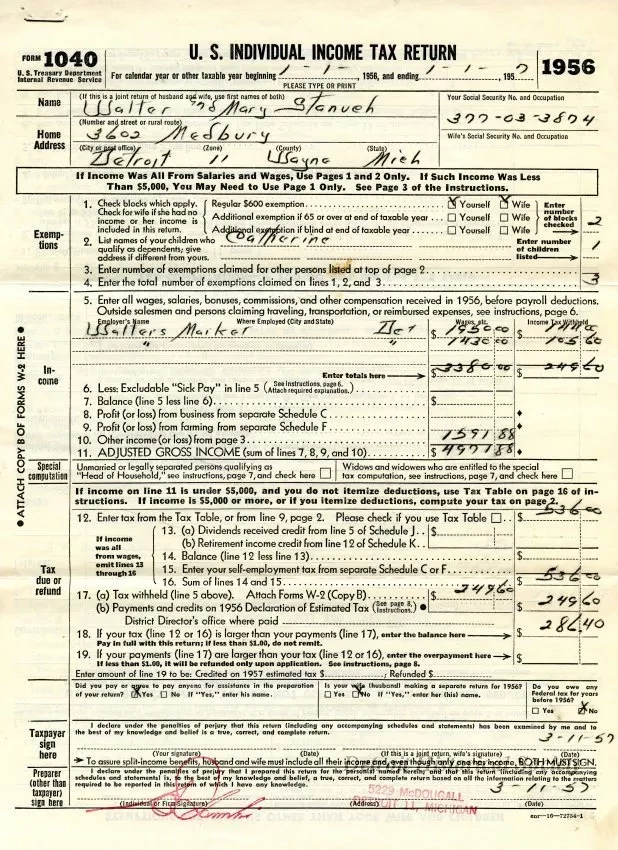 FORM 1040
U. S. Treasury Department
Internal Revenue Service
U. S. INDIVIDUAL INCOME TAX RETURN
For calendar year or other taxable year beginning 1-1-, 1956, and ending 1-1-, 195 7
PLEASE TYPE OR PRINT
1956
Name
(If this is a joint return of husband and wife, use first names of both)
Walter and Mary Stanueh
Your Social Security No. and Occupation
377-03-3874
Home Address
(Number and street or rural route)
3602 Medbury
Wife's Social Security No. and Occupation
(City or post office) (Zone) (County) (State)
Detroit 11 Wayne Mich
If Income Was All From Salaries and Wages, Use Pages 1 and 2 Only. If Such Income Was Less
Than $5,000, You May Need to Use Page 1 Only. See Page 3 of the Instructions.
Exemptions
1. Check blocks which apply. Check for wife if she had no income or her income is included in this return.
Regular $600 exemption Yourself Wife
Additional exemption if 65 or over at end of taxable year Yourself Wife
Additional exemption if blind at end of taxable year Yourself Wife
Enter number of blocks checked 2
2. List names of your children who qualify as dependents; give address if different from yours.
Catherine
Enter number of children listed 1
3. Enter number of exemptions claimed for other persons listed at top of page 2
4. Enter the total number of exemptions claimed on lines 1, 2, and 3 3
ATTACH COPY B OF FORMS W-2 HERE
Income
5. Enter all wages, salaries, bonuses, commissions, and other compensation received in 1956, before payroll deductions.
Outside salesmen and persons claiming traveling, transportation, or reimbursed expenses, see instructions, page 6.
Employer's Name Where Employed (City and State) Wages, etc. Income Tax Withheld
Walters Market Det $ 1950.00 $
" " 1430.00 105.60
Enter totals here $ 3380.00 $ 249.60
6. Less: Excludable "Sick Pay" in line 5 (See instructions, page 6. Attach required explanation.)
7. Balance (line 5 less line 6) $
8. Profit (or loss) from business from separate Schedule C
9. Profit (or loss) from farming from separate Schedule F
10. Other income (or loss) from page 3 1591 88
11. ADJUSTED GROSS INCOME (sum of lines 7, 8, 9, and 10) $ 4971 88
Special computation
Unmarried or legally separated persons qualifying as "Head of Household," see instructions, page 7, and check here
Widows and widowers who are entitled to the special tax computation, see instructions, page 7, and check here
If income on line 11 is under $5,000, and you do not itemize deductions, use Tax Table on page 16 of in-
structions. If income is $5,000 or more, or if you itemize deductions, compute your tax on page 2.
Tax due or refund
12. Enter tax from the Tax Table, or from line 9, page 2. Please check if you use Tax Table $ 536.00
If income was all from wages, omit lines 13 through 16
13. (a) Dividends received credit from line 5 of Schedule J $
(b) Retirement income credit from line 12 of Schedule K
14. Balance (line 12 less line 13) $
15. Enter your self-employment tax from separate Schedule C or F
16. Sum of lines 14 and 15 $ 536.00
17. (a) Tax withheld (line 5 above). Attach Forms W-2 (Copy B) $ 249.60
(b) Payments and credits on 1956 Declaration of Estimated Tax (See page 8, Instructions.) 249.60
District Director's office where paid
18. If your tax (line 12 or 16) is larger than your payments (line 17), enter the balance here $ 286.40
Pay in full with this return; if less than $1.00, do not remit.
19. If your payments (line 17) are larger than your tax (line 12 or 16), enter the overpayment here $
If less than $1.00, it will be refunded only upon application. See instructions, page 8.
Enter amount of line 19 to be: Credited on 1957 estimated tax $ ; Refunded $
Did you pay or agree to pay anyone for assistance in the preparation of your return? Yes No If "Yes," enter his name.
Is your wife (husband) making a separate return for 1956? Yes No If "Yes," enter her (his) name.
Do you owe any Federal tax for years before 1956? Yes No
Taxpayer sign here
I declare under the penalties of perjury that this return (including any accompanying schedules and statements) has been examined by me and to
the best of my knowledge and belief is a true, correct, and complete return.
3-11-57
(Your signature) (Date) (If this is a joint return, wife's signature) (Date)
To assure split-income benefits, husband and wife must include all their income and, even though only one has income, BOTH MUST SIGN.
Preparer (other than taxpayer) sign here
I declare under the penalties of perjury that I prepared this return for the person(s) named herein; and that this return (including any accompanying
schedules and statements) is, to the best of my knowledge and belief, a true, correct, and complete return based on all the information relating to the matters
required to be reported in this return of which I have any knowledge.
3-11-57
5229 McDOUGALL
DETROIT 11, MICHIGAN
(Individual or Firm Signature) (Address) (Date)